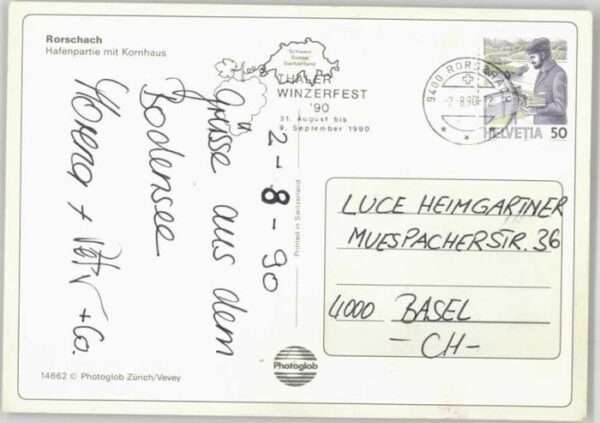 Rorschach
Hafenpartie mit Kornhaus
Schweiz
Suisse
Switzerland
THALER
WINZERFEST
'90
31. August bis
9. September 1990
9400 RORSCHACH
-2.-8.90
HELVETIA 50
2-8-90
Grüsse aus dem
Bodensee
+ Co.
Printed in Switzerland
LUCE HEIMGARTNER
MUESPACHERSTR. 36
4000 BASEL
-CH-
Photoglob
14662 © Photoglob Zürich/Vevey